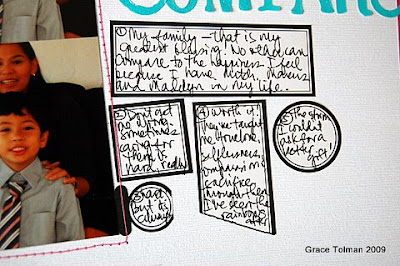 COMPARE
① My family - that is my
greatest blessing! No other can
compare to the happiness I feel
because I have
and in my life.
② Don't get
me wrong
sometimes
caring for
them is
hard, really
③
But its
always
④ worth it.
They've taught
me
selflessness,
compassion
sacrifice
through them
I've seen the
rainbows
after
⑤ the storm
I couldn't
ask for a
better
gift!
Grace Tolman 2009